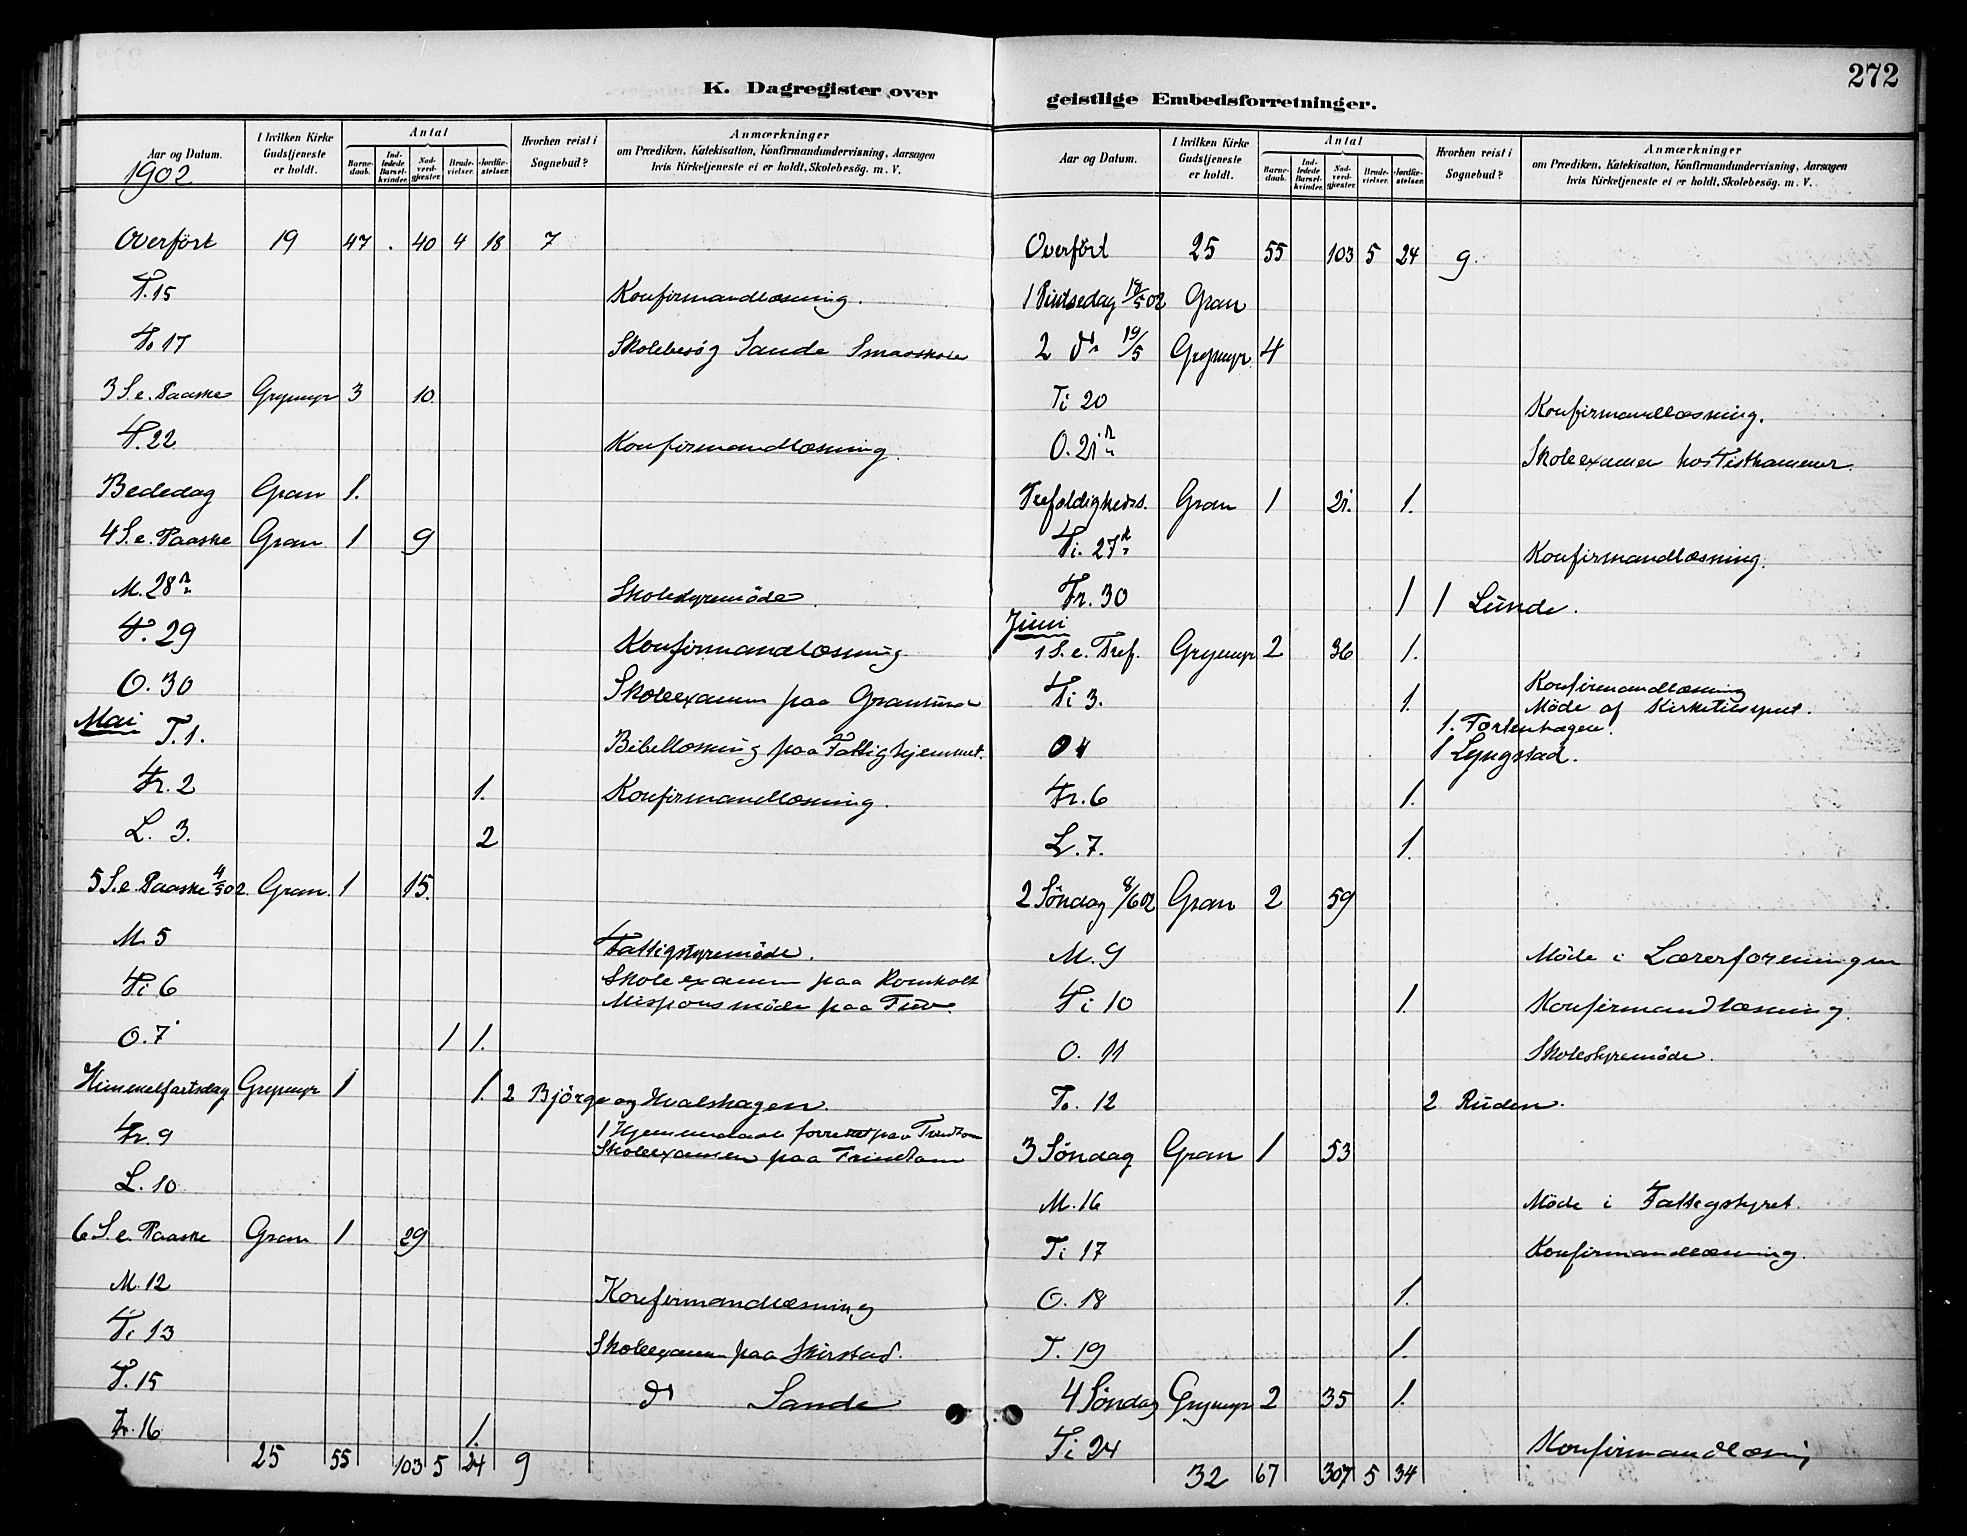 K. Dagregister over
Aar og Datum.
1902
I hvilken Kirke Gudstjeneste er holdt.
Antal
Barnedaab.
Indledede Barselkvinder.
Nadverdgjester.
Brudevielser.
Jordfæstelser.
Hvorhen reist i Sognebud?
Anmærkninger
om Prædiken, Katekisation, Konfirmandundervisning, Aarsagen
hvis Kirketjeneste ei er holdt, Skolebesög. m. V.
Overført 19 47 . 40 4 18 7
T. 15 Konfirmandlæsning.
To 17 Skolebesøg Sande Smaaskole
3 S. e. Paaske Grymyr 3 10
T. 22 Konfirmandlæsning.
Bededag Gran 1.
4 S. e. Paaske Gran 1 9
M. 28 Skolestyremøde.
T. 29 Konfirmandlæsning
O. 30 Skoleexamen paa Grantunet
Mai T. 1. Bibellæsning paa Fattighjemmet.
Fr. 2 1. Konfirmandlæsning.
L. 3. 2
5 S. e. Paaske 4/5 02. Gran. 1 15.
M. 5 Fattigstyremøde.
Ti 6 Skoleexamen paa
Missionsmøde paa
O. 7 1 1.
Himmelfartsdag Grymyr 1 1. 2 Bjørge og Hvalshagen.
Fr. 9 1 Hjemmedaab forrettet paa
Skoleexamen paa
L. 10
6 S. e. Paaske Gran 1 29
M. 12 Konfirmandlæsning
Ti 13 Skoleexamen paa Skirstad.
T. 15 do Sande
Fr. 16 1.
25 55 103 5 24 9
geistlige Embedsforretninger.
272
Aar og Datum.
I hvilken Kirke Gudstjeneste er holdt.
Antal
Barnedaab.
Indledede Barselkvinder.
Nadverdgjester.
Brudevielser.
Jordfæstelser.
Hvorhen reist i Sognebud?
Anmærkninger
om Prædiken, Katekisation, Konfirmandundervisning, Aarsagen
hvis Kirketjeneste ei er holdt, Skolebesög. m. V.
Overført 25 55 103 5 24 9.
1 Pintsedag 18/5 02 Gran
2 do 19/5 Grymyr 4
Ti 20 Konfirmandlæsning.
O. 21 Skoleexamen hos
Trefoldigheds. Gran 1 21. 1.
Ti. 27 Konfirmandlæsning.
Fr. 30 1 1 Lunde.
Juni
1 S. e. Tref. Grymyr 2 36 1.
Ti 3. 1. Konfirmandlæsning
Møde af Kirketilsynet.
O 4 1. Tortenhagen.
1 Lyngstad.
Fr. 6 1.
L. 7. 1.
2 Søndag 8/6 02 Gran 2 59
M. 9 Møde i Lærerforeningen
Ti 10 1. Konfirmandlæsning.
O. 11 Skolestyremøde.
To. 12 2 Ruden.
3 Søndag Gran 1 53
M. 16 Møde i Fattigstyret.
Ti 17 Konfirmandlæsning.
O. 18 1.
T. 19 1.
4 Søndag Grymyr 2 35 1.
Ti 24 Konfirmandlæsning
32 67 307 5 34